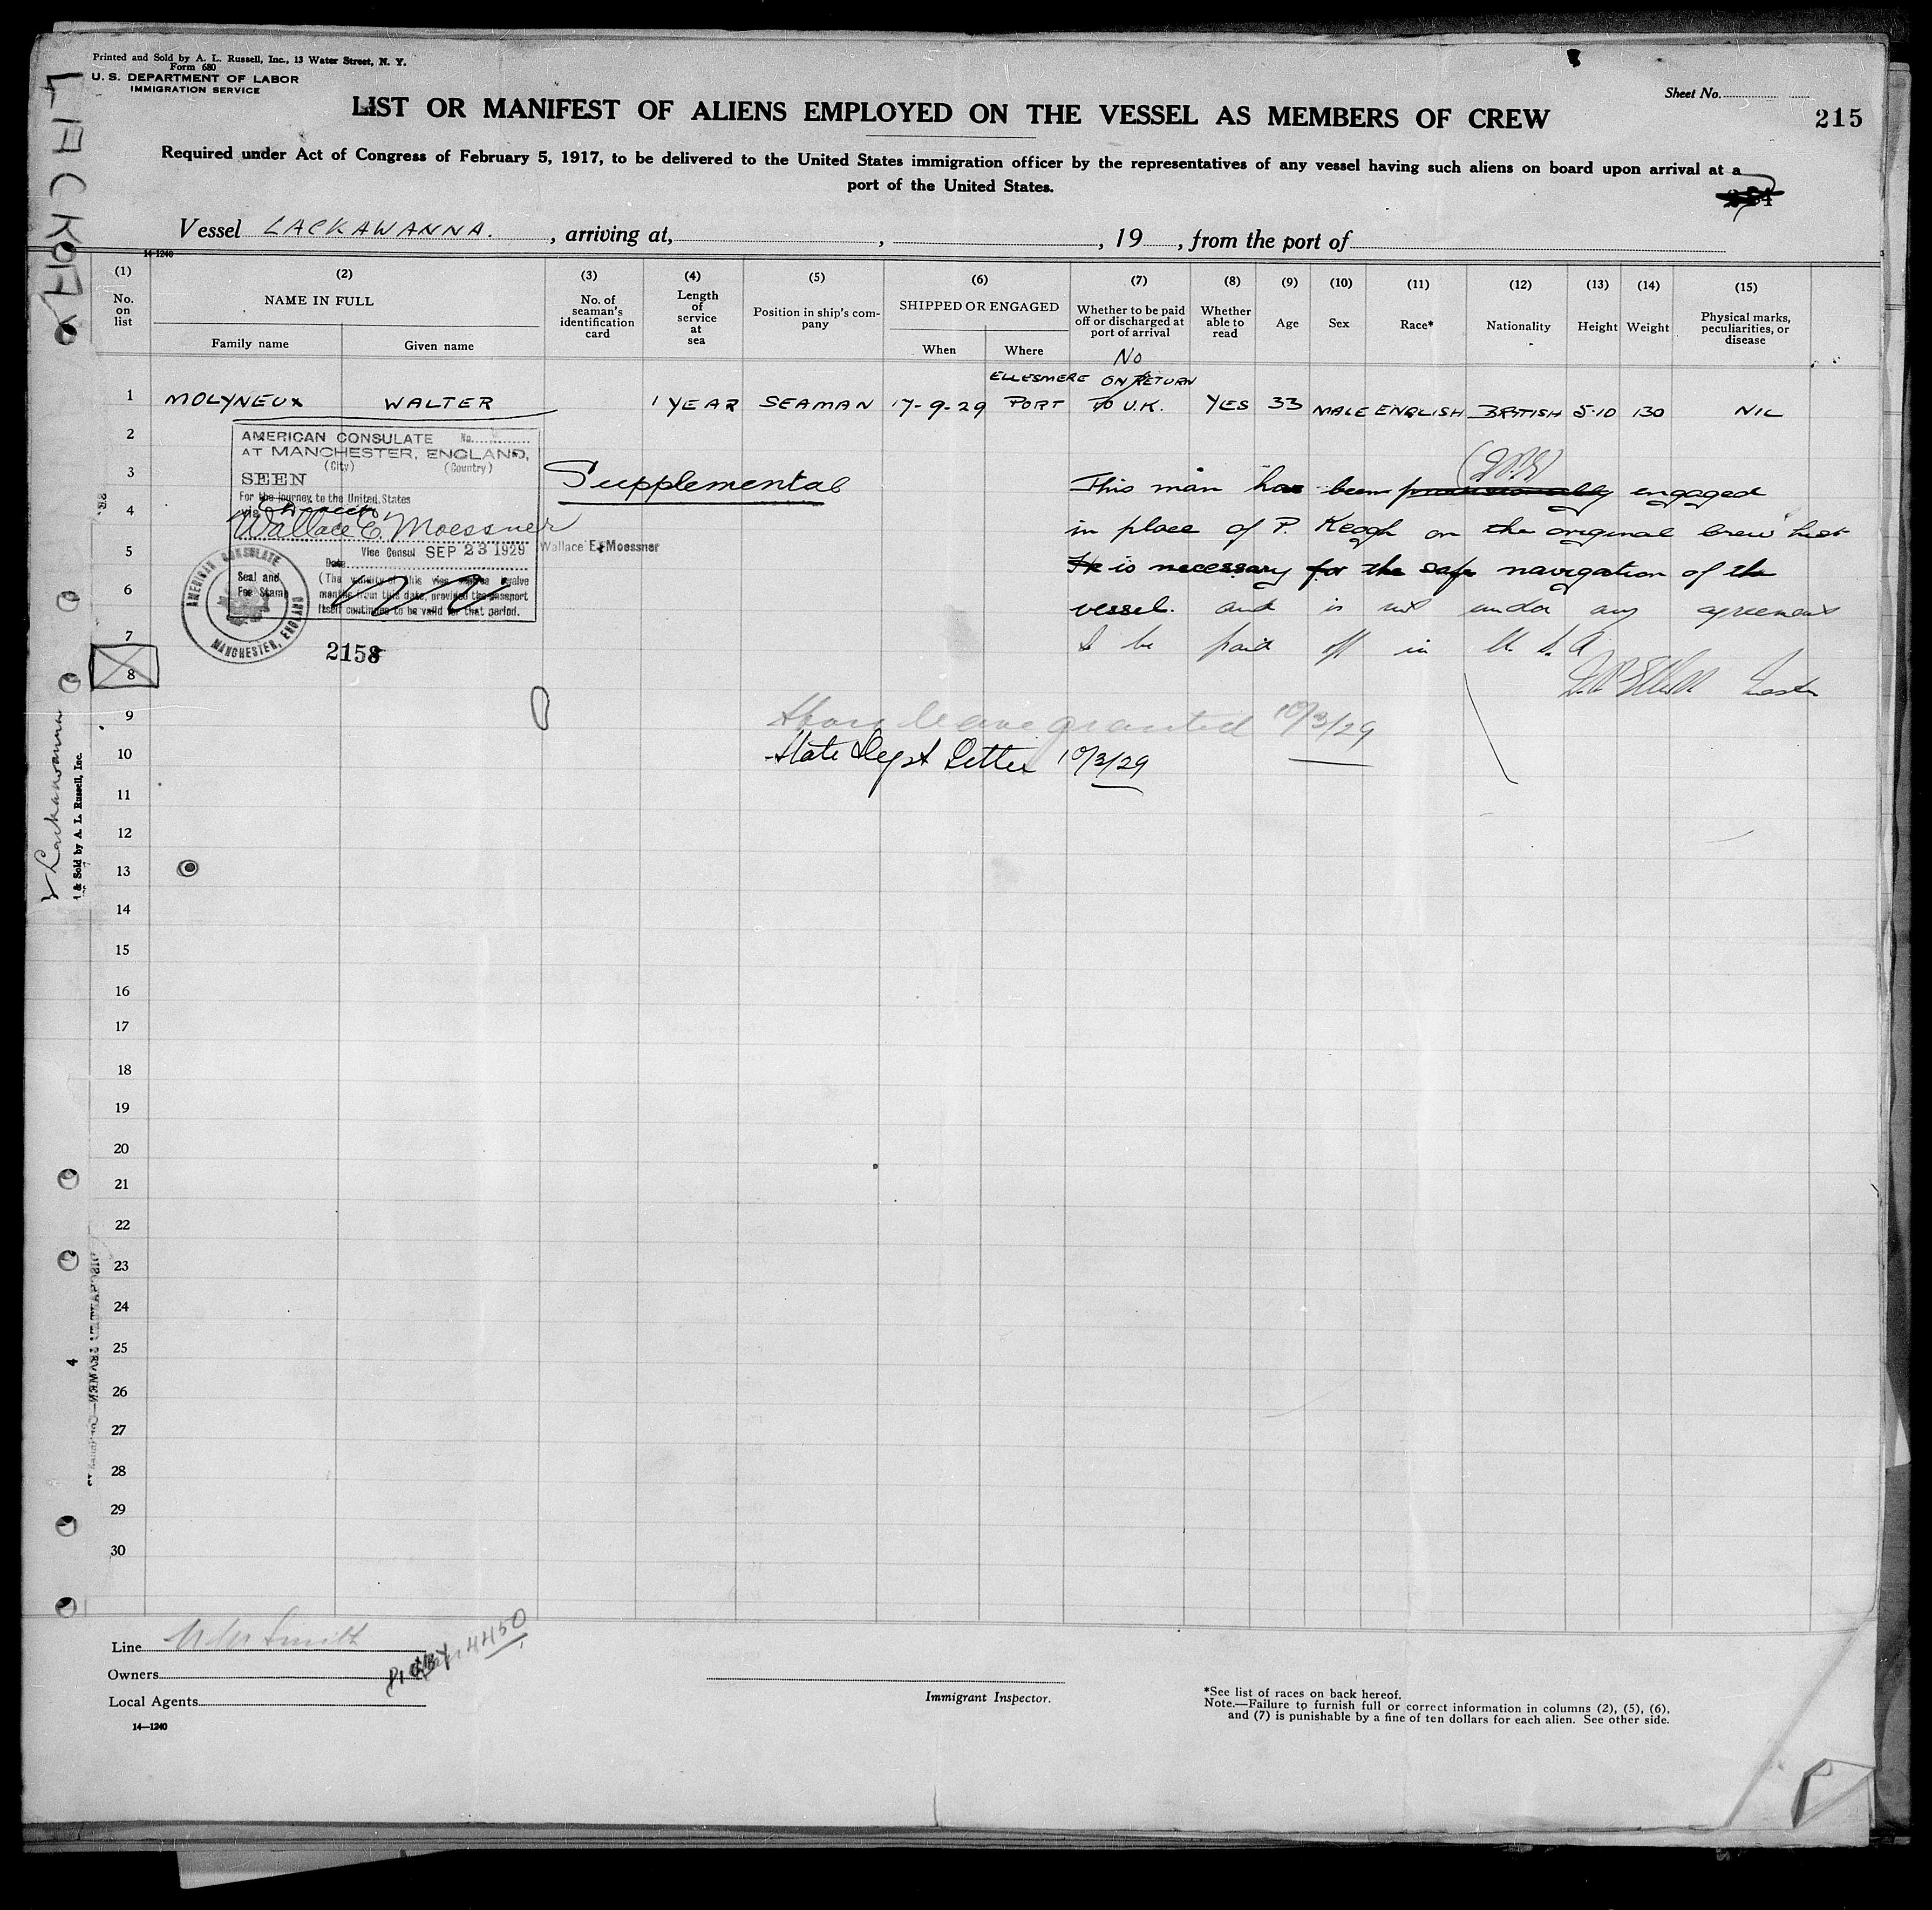 Printed and Sold by A. L. Russell, Inc., 13 Water Street, N. Y.
Form 680
U. S. DEPARTMENT OF LABOR
IMMIGRATION SERVICE
Sheet No.
LIST OR MANIFEST OF ALIENS EMPLOYED ON THE VESSEL AS MEMBERS OF CREW
215
Required under Act of Congress of February 5, 1917, to be delivered to the United States immigration officer by the representatives of any vessel having such aliens on board upon arrival at a
port of the United States.
Vessel LACKAWANNA. , arriving at, , , 19 , from the port of
14-1240
(1) (2) (3) (4) (5) (6) (7) (8) (9) (10) (11) (12) (13) (14) (15)
No. on list
NAME IN FULL
Family name Given name
No. of seaman's identification card
Length of service at sea
Position in ship's company
SHIPPED OR ENGAGED
When Where
Whether to be paid off or discharged at port of arrival
Whether able to read
Age
Sex
Race*
Nationality
Height
Weight
Physical marks, peculiarities, or disease
No
ELLESMERE ON RETURN
1 MOLYNEUX WALTER 1 YEAR SEAMAN 17-9-29 PORT TO U.K. YES 33 MALE ENGLISH BRITISH 5-10 130 NIL
2
3
4
5
6
7
8
9
10
11
12
13
14
15
16
17
18
19
20
21
22
23
24
25
26
27
28
29
30
AMERICAN CONSULATE No.
AT MANCHESTER, ENGLAND,
(City) (Country)
SEEN
For the journey to the United States
via
Wallace E. Moessner
Vice Consul SEP 23 1929 Wallace E. Moessner
Date
(The validity of this visa expires twelve
months from this date, provided the passport
itself continues to be valid for that period.
Seal and
Fee Stamp
AMERICAN CONSULATE
MANCHESTER, ENGLAND
2158
Supplemental
This man has been provisionally engaged
in place of P. Keogh on the original Crew List
He is necessary for the safe navigation of the
vessel. and is not under any agreement
to be paid off in U.S.A
Shore leave granted 10/3/29
State Dept Letter 10/3/29
LACKA
Lackawanna
1 & Sold by A. L. Russell, Inc.
4
Line
Owners
Local Agents
14—1240
4450
Immigrant Inspector.
*See list of races on back hereof.
Note.—Failure to furnish full or correct information in columns (2), (5), (6),
and (7) is punishable by a fine of ten dollars for each alien. See other side.